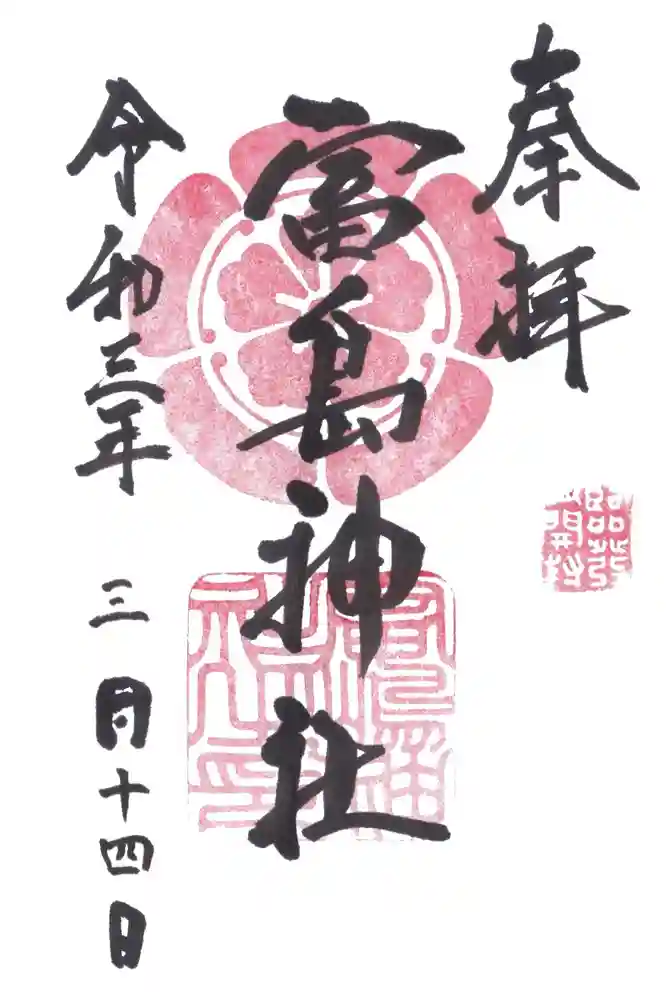 奉拝
富島神社
令和三年 三月十四日